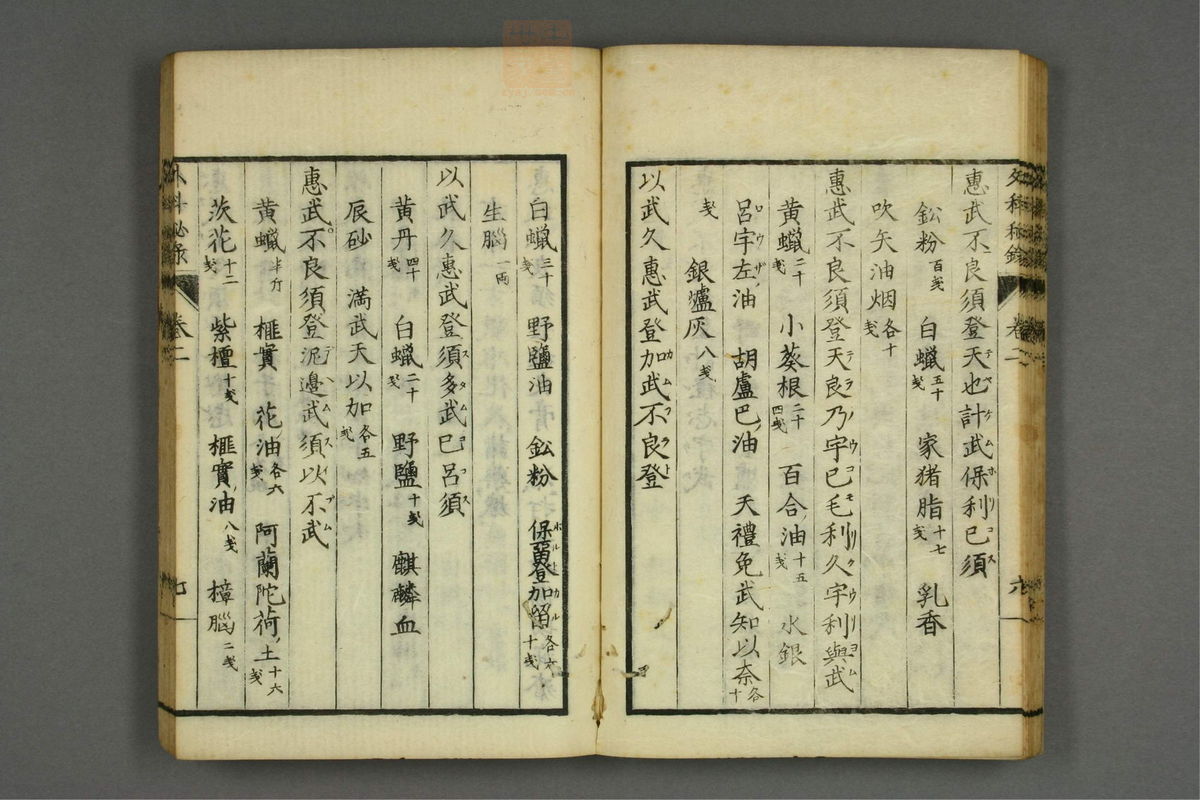 外科秘録 卷二 六
惠武不良須登天也計武保利已須
鈆粉百戔 白蠟五十戔 家猪脂十七戔 乳香
吹矢油烟各十戔
惠武不良須登天良乃宇已毛利久宇利與武
黄蠟二十戔 小葵根二十四戔 百合油十五戔 水銀
呂宇左油 胡盧巴油 天禮免武知以奈各十
戔 銀爐灰八戔
以武久惠武登加武不良登
白蠟三十戔 野鹽油 鈆粉 保留登加留各六十戔
生腦一両
以武久惠武登須多武已呂須
黄丹四十戔 白蠟二十戔 野鹽十戔 麒麟血
辰砂 満武天以加各五戔
惠武不良須登泥邊武須以不武
黄蠟半斤 榧實 花油各六戔 阿蘭陀荷土十六戔
茨花十二戔 紫檀十戔 榧實油八戔 樟腦二戔
外科秘録 卷二 七